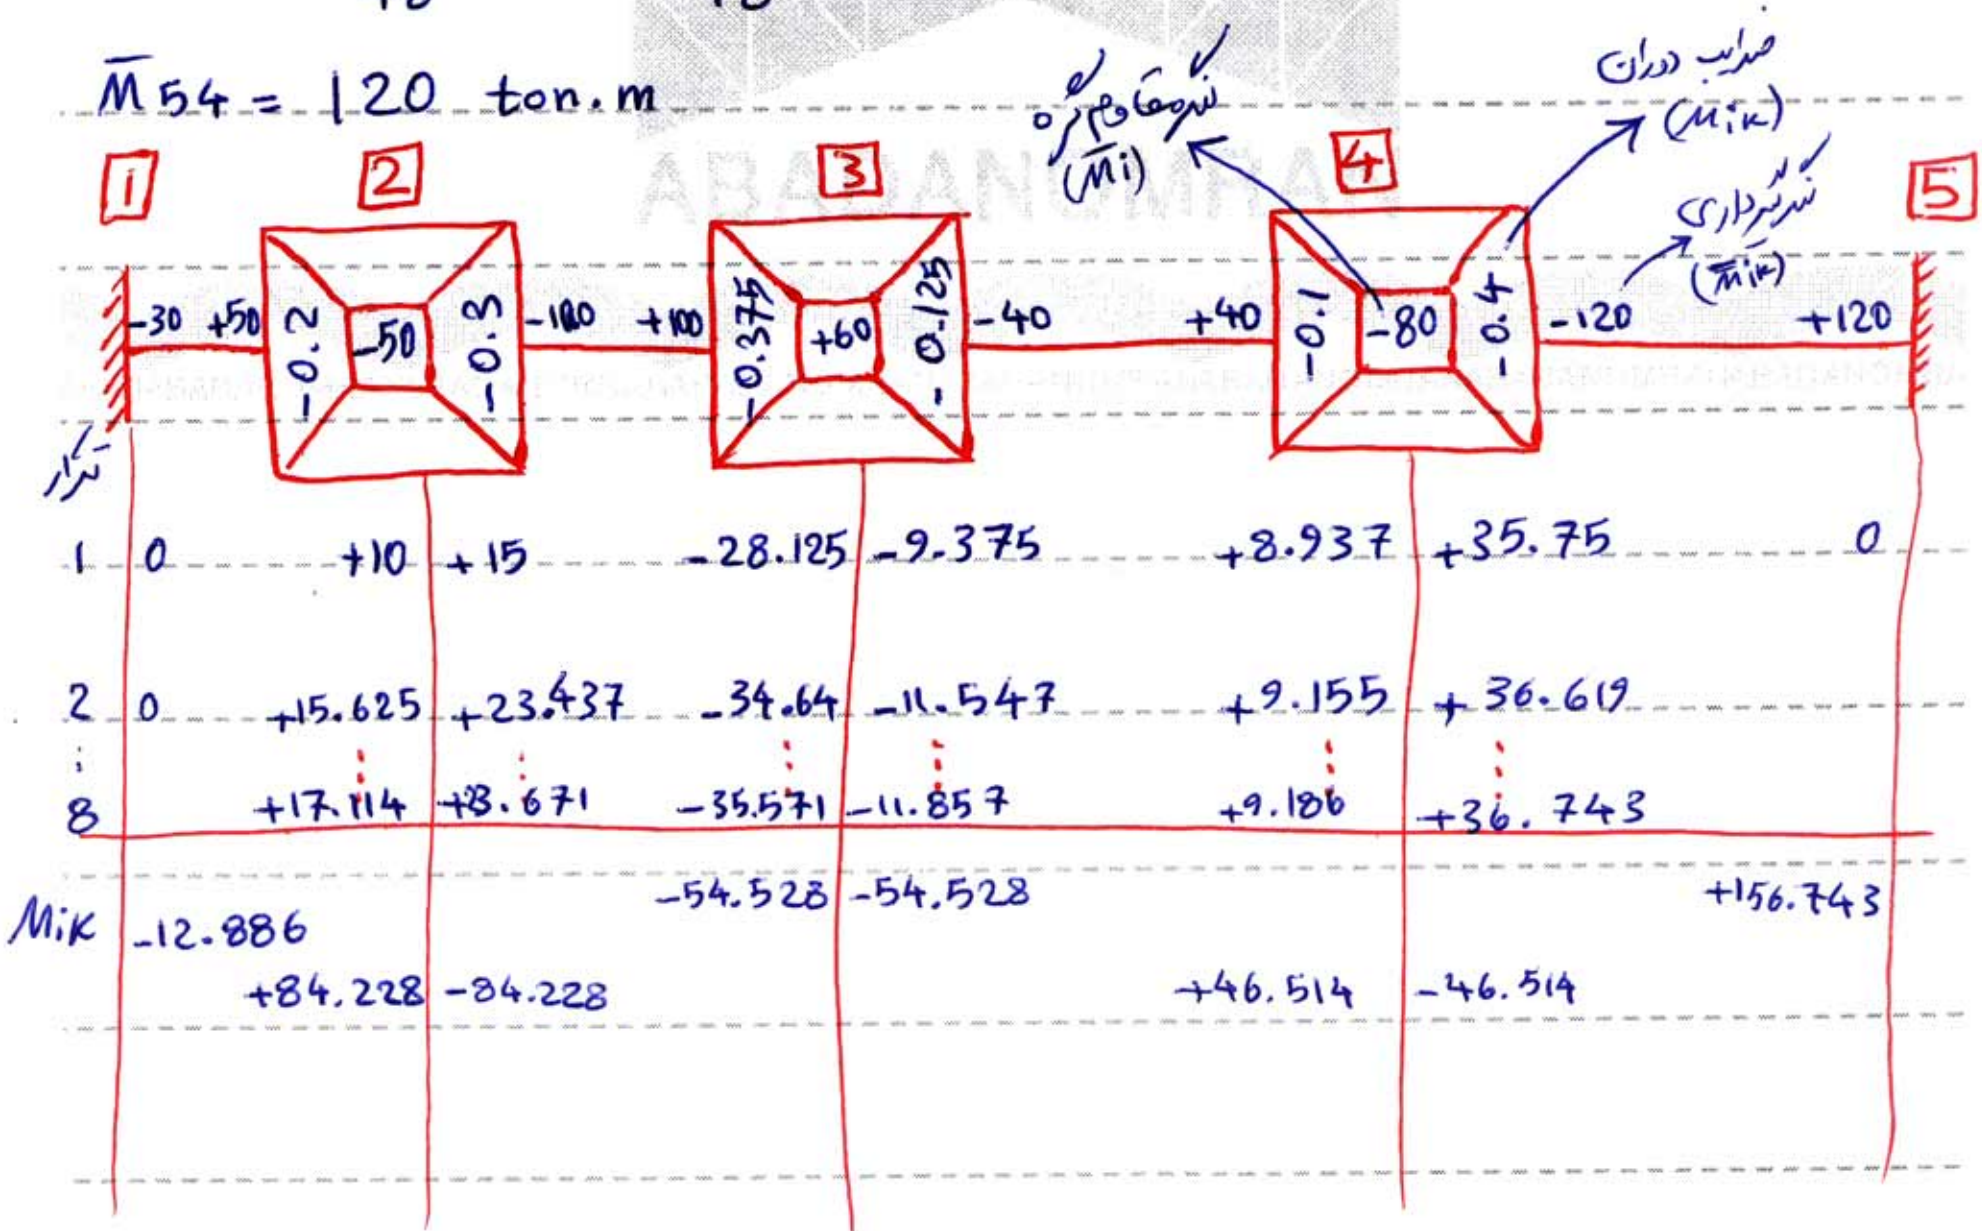 M̄54 = 120 ton.m
ABADANOMRAN
ضرایب دوران
(Mik)
لنگر مقاوم گره
(M̄i)
لنگر گیرداری
(M̄ik)
1 2 3 4 5
-30 +50 -0.2 -50 -0.3 -100 +100 -0.375 +60 -0.125 -40 +40 -0.1 -80 -0.4 -120 +120
تکرار
1 0 +10 +15 -28.125 -9.375 +8.937 +35.75 0
2 0 +15.625 +23.437 -34.64 -11.547 +9.155 +36.619
8 +17.114 +3.671 -35.571 -11.857 +9.186 +36.743
-54.528 -54.528 +156.743
Mik -12.886
+84.228 -84.228 +46.514 -46.514